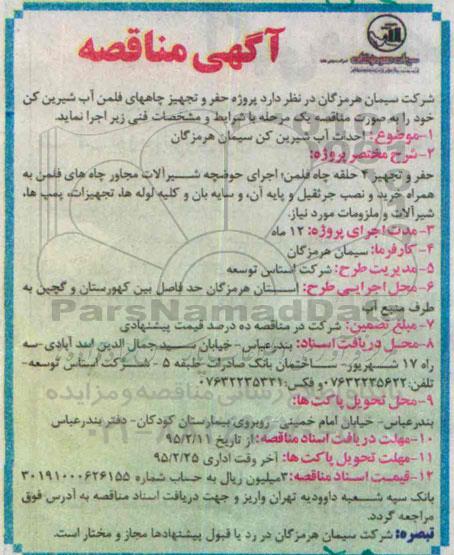 آگهی مناقصه
شرکت سیمان هرمزگان در نظر دارد پروژه حفر و تجهیز چاههای فلمن آب شیرین کن
خود را به صورت مناقصه یک مرحله با شرایط و مشخصات فنی زیر اجرا نماید.
۱-موضوع: احداث آب شیرین کن سیمان هرمزگان
۲-شرح مختصر پروژه:
حفر و تجهیز ۴ حلقه چاه فلمن؛ اجرای حوضچه شیرآلات مجاور چاه های فلمن به
همراه خرید و نصب جرثقیل و پایه آن، و سایه بان و کلیه لوله ها، تجهیزات، پمپ ها،
شیرآلات و ملزومات مورد نیاز.
۳- مدت اجرای پروژه: ۱۲ ماه
۴- کارفرما: سیمان هرمزگان
۵- مدیریت طرح: شرکت اساس توسعه
۶- محل اجرایی طرح: استان هرمزگان حد فاصل بین کهورستان و گچین به
طرف منبع آب
ParsNamadData
۷- مبلغ تضمین: شرکت در مناقصه ده درصد قیمت پیشنهادی
۸-محل دریافت اسناد: بندرعباس- خیابان سید جمال الدین اسد آبادی-سه
راه ۱۷ شهریور- ساختمان بانک صادرات طبقه ۵ - شرکت اساس توسعه-
تلفن:۰۷۶۳۲۲۳۵۶۲۲ و فکس:۰۷۶۳۲۲۳۵۳۳۱
۹-محل تحویل پاکت ها:
بندرعباس- خیابان امام خمینی - روبروی بیمارستان کودکان- دفتر بندرعباس
۱۰-مهلت دریافت اسناد مناقصه: از تاریخ ۹۵/۲/۱۱
۱۱-مهلت تحویل پاکت ها: آخر وقت اداری ۹۵/۲/۲۵
۱۲-قیمت اسناد مناقصه: ۳میلیون ریال به حساب شماره ۳۰۱۹۱۰۰۰۶۲۶۱۵۵
بانک سپه شعبه داوودیه تهران واریز و جهت دریافت اسناد مناقصه به آدرس فوق
مراجعه گردد.
تبصره: شرکت سیمان هرمزگان در رد یا قبول پیشنهادها مجاز و مختار است.